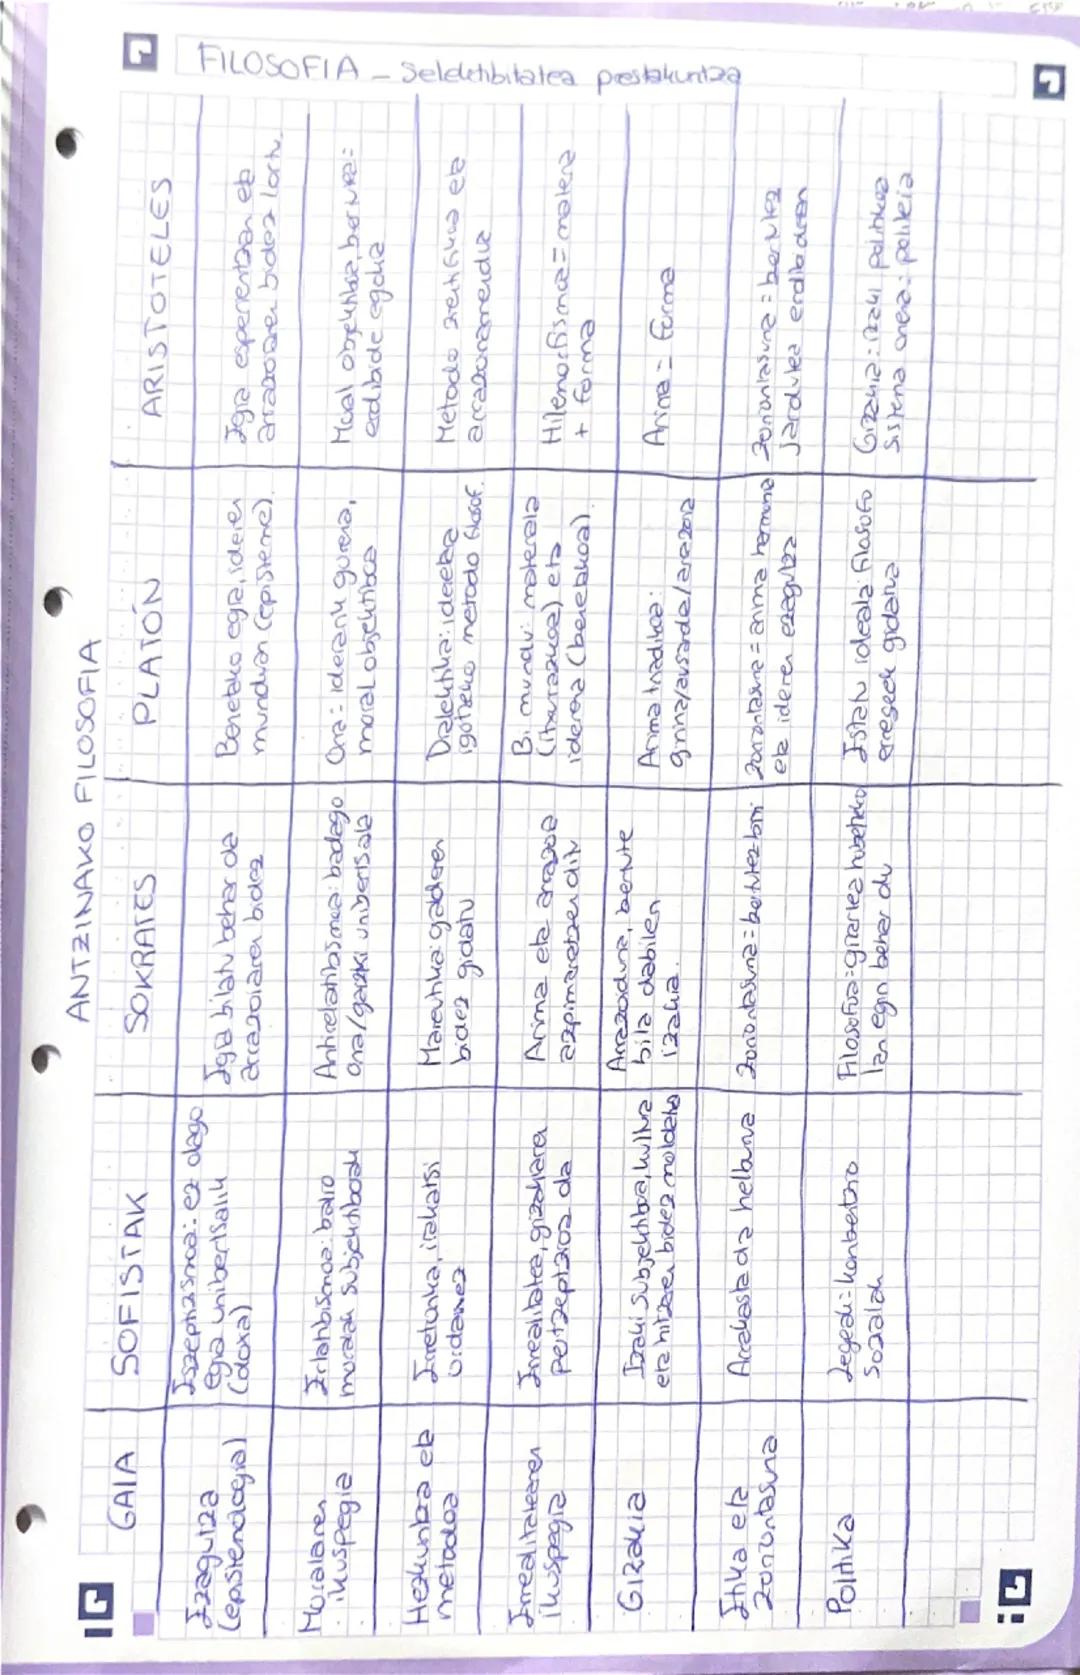 FILOSOFIA - Selektibitatea prestakuntza
ANTZINAKO FILOSOFIA
GAIA
SOFISTAK
SOKRATES
PLATÓN
ARISTOTELES
Ezagutza
(epistemologia)
Eszeptizismoa: ez dago
egia unibertsalik
(doxa)
Egia bilatu behar da
arrazoiaren bidez
Benetako egia, ideien
munduan (episteme).
Egia esperientzian eta
arrazoiaren bidez lortu.
Moralaren
ikuspegia
Erlatibismoa: balio
moralak subjektiboak
Antirelatibismoa: badago
ona/gaizki unibertsala
Ona = ideiarik gorena,
moral objektiboa
Moral objektiboa, bertutea =
erdibide egokia
Hezkuntza eta
metodoa
Erretorika, irakatsi
Maieutika: galderen
bidez gidatu
Dialektika: ideietara
igotzeko metodo filosof.
Metodo zientifikoa eta
arrazonamendua
Errealitatearen
ikuspegia
Errealitatea, gizakiaren
pertzepzioa da
Arima eta arrazoia
azpimarratzen ditu
Bi mundu: materiala
(itxurazkoa) eta
ideiena (benetakoa).
Hilemorfismoa = materia
+ forma
Gizakia
Izaki subjektiboa, kultura
eta hitzaren bidez moldatu
Arrazoiduna, bertute
bila dabilen
izakia.
Arima triadikoa:
grina/ausardia/arrazoia
Arima = forma
Etika eta
zoriontasuna
Arrakasta da helburua
Zoriontasuna = bertutez bizi
Zoriontasuna = arima harmonia
eta ideien ezagutza
Zoriontasuna = bertutez
jardutea erdibidean
Politika
Legeak = konbentzio
sozialak
Filosofoa = gizartea hobetzeko
lan egin behar du
Estatu ideala: filosofo
erregeek gidatua
Gizakia: izaki politikoa
Sistema onena: politeia